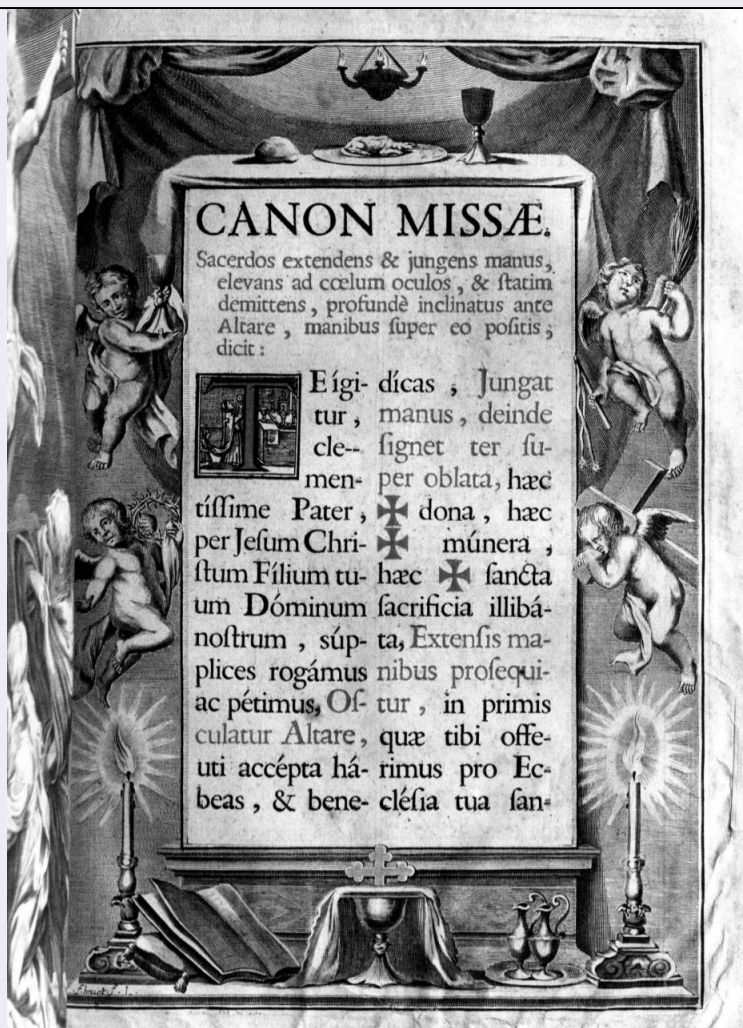 CANON MISSÆ.
Sacerdos extendens & jungens manus,
elevans ad cœlum oculos, & ſtatim
demittens, profundè inclinatus ante
Altare, manibus ſuper eo poſitis,
dicit:
TE ígi-
tur,
cle--
men-
tíſſime Pater,
per Jeſum Chri-
ſtum Fílium tu-
um Dóminum
noſtrum, súp-
plices rogámus
ac pétimus, Oſ-
culatur Altare,
uti accépta há-
beas, & bene-
dícas, Jungat
manus, deinde
ſignet ter ſu-
per oblata, hæc
✠ dona, hæc
✠ múnera,
hæc ✠ ſancta
sacrificia illibá-
ta, Extenſis ma-
nibus proſequi-
tur, in primis
quæ tibi offe-
rimus pro Ec-
cléſia tua ſan-